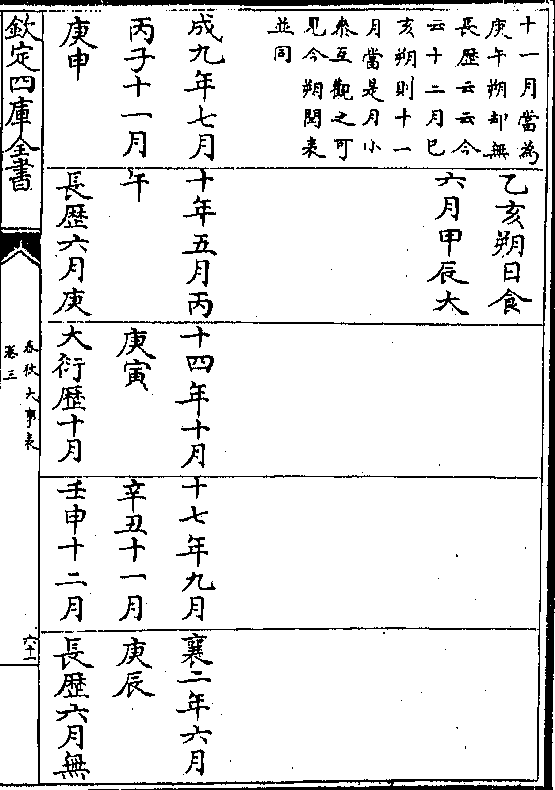 十一月當為
庚午朔却無
長歷云云今
云十二月巳
亥朔則十一
月當是月小
叅互觀之可
見今朔閏表
並同
成九年七月
丙子十一月
庚申
乙亥朔日食
六月甲辰大
十年五月丙
午
長歷六月庚
十四年十月
庚寅
大衍歷十月
十七年九月
辛丑十一月
壬申十二月
襄二年六月
庚辰
長歷六月無
欽定四庫全書
春秋大事表
卷三